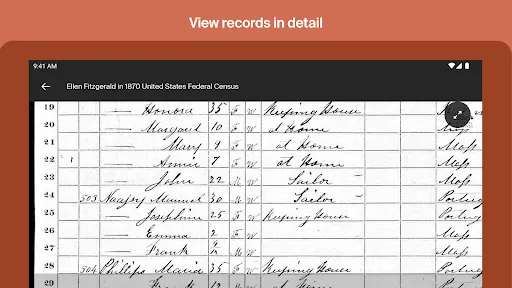 View records in detail
9:41 AM
Ellen Fitzgerald in 1870 United States Federal Census
19 — Honora 35 F W Keeping House
20 — Margaret 10 F W at Home Mass
21 — Mary 9 F W at Home Mass
22 1 — Annie 7 F W at Home Mass
23 — John 22 M W Sailor Mass
24 503 Manuel 30 M W Sailor Portug
25 — Josephine 25 F W Keeping House Portug
26 — Emma 2 F W Mass
27 — Frank M W Mass
28 504 Phillips Maria 35 F W Keeping House Portug
— Frank 12 M W at Home